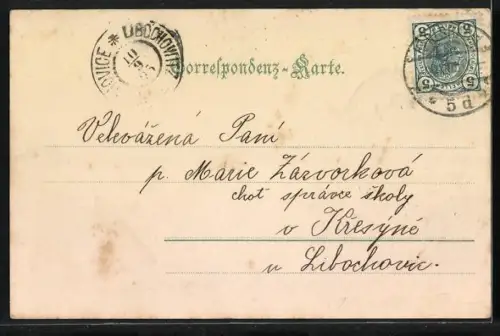 LIBOCHOWITZ
OVICE
10
5
Correspondenz-Karte.
5 5
5 5
5 d
Velevážená Paní
p. Marie Závorková
choť správce školy
v Křesýně
u Libochovic.